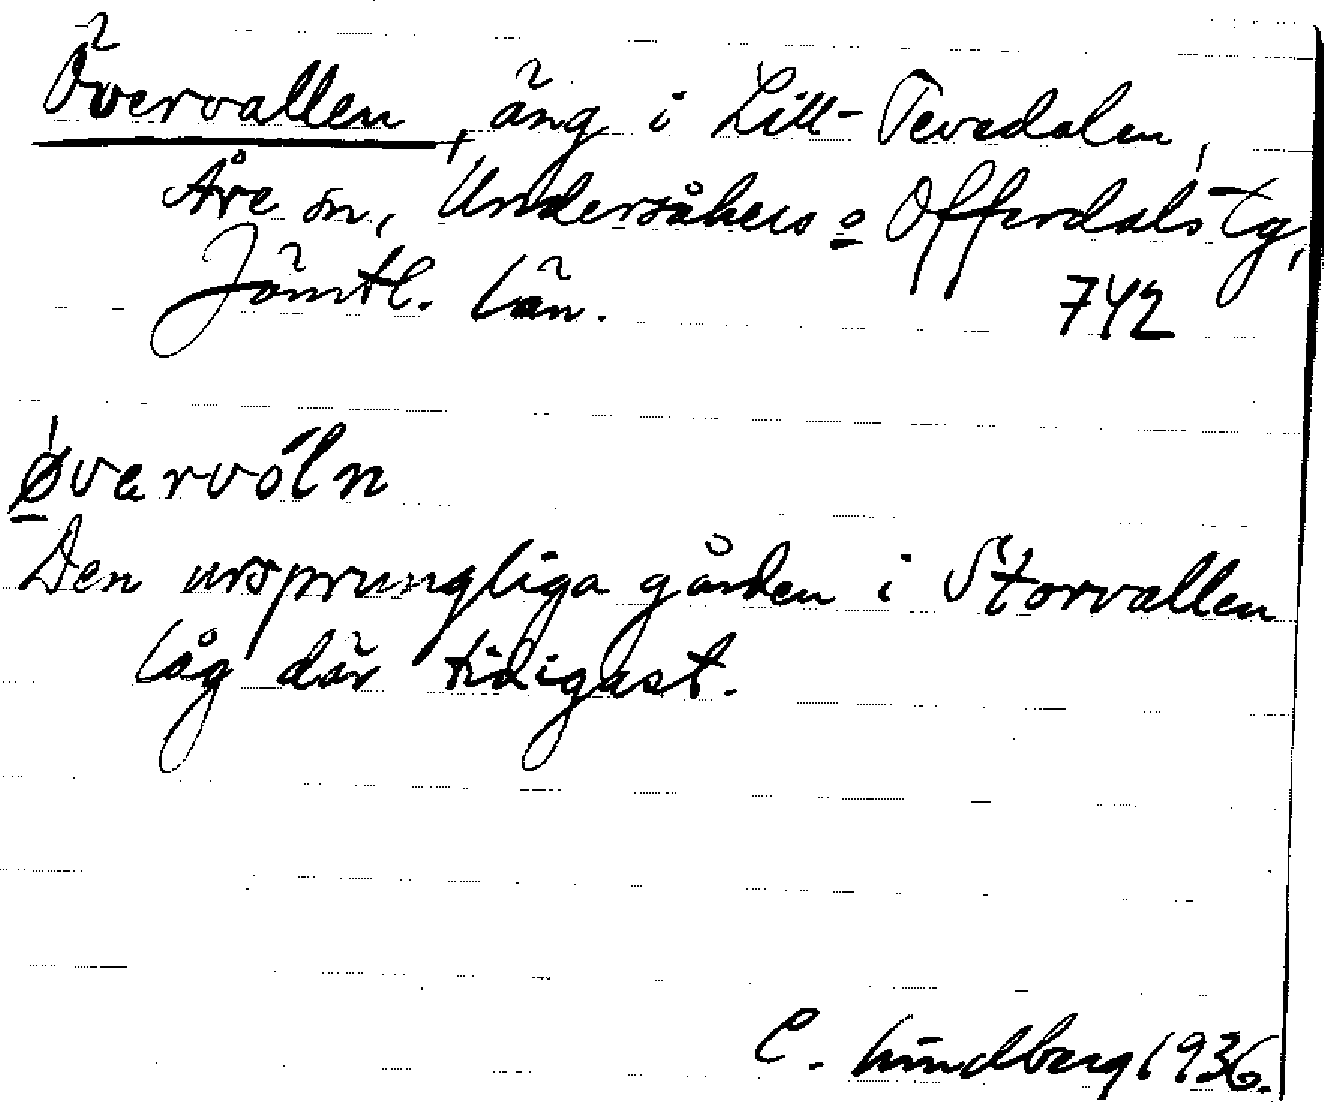 Övervallen, äng i Lill-Tevedalen,
Åre sn, Undersåkers o Offerdals tg,
Jämtl. län. 742
øvervóln
Den ursprungliga gården i Storvallen
låg där tidigast.
C. Lindberg 1936.